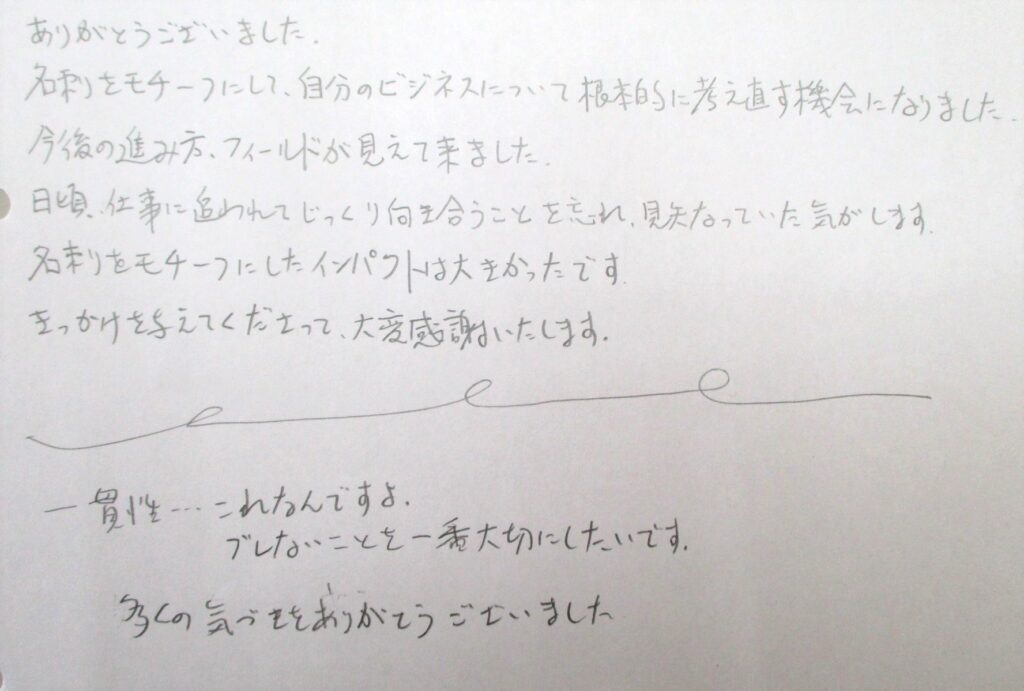 ありがとうございました.
名刺をモチーフにして、自分のビジネスについて根本的に考え直す機会になりました.
今後の進み方、フィールドが見えて来ました.
日頃、仕事に追われてじっくり向き合うことを忘れ、見失なっていた気がします.
名刺をモチーフにしたインパクトは大きかったです
きっかけを与えてくださって、大変感謝いたします.
一貫性…これなんですよ.
ブレないことを一番大切にしたいです.
多くの気づきをありがとうございました